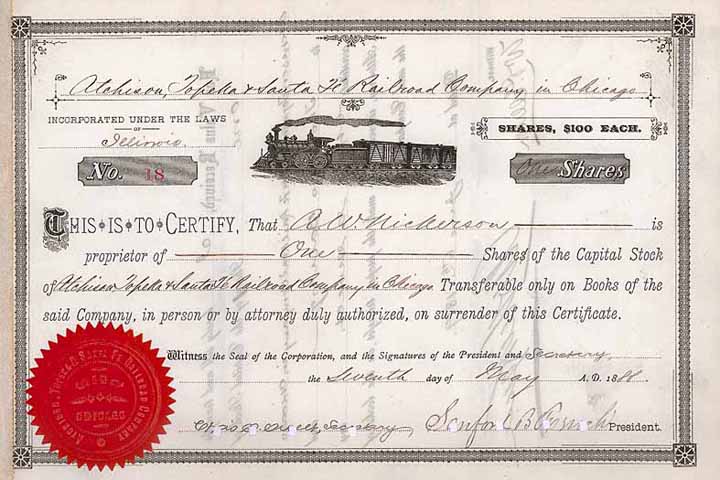 Atchison, Topeka & Santa Fe Railroad Company in Chicago
INCORPORATED UNDER THE LAWS
OF
Illinois
SHARES, $100 EACH.
No. 18
One Shares
THIS IS TO CERTIFY, That A. W. Nickerson is
proprietor of One Shares of the Capital Stock
of Atchison Topeka & Santa Fe Railroad Company in Chicago Transferable only on Books of the
said Company, in person or by attorney duly authorized, on surrender of this Certificate.
Witness the Seal of the Corporation, and the Signatures of the President and Secretary,
the Seventh day of May A. D. 1888.
Secretary, Sanford B. President.
ATCHISON, TOPEKA & SANTA FE RAILROAD COMPANY
IN
CHICAGO